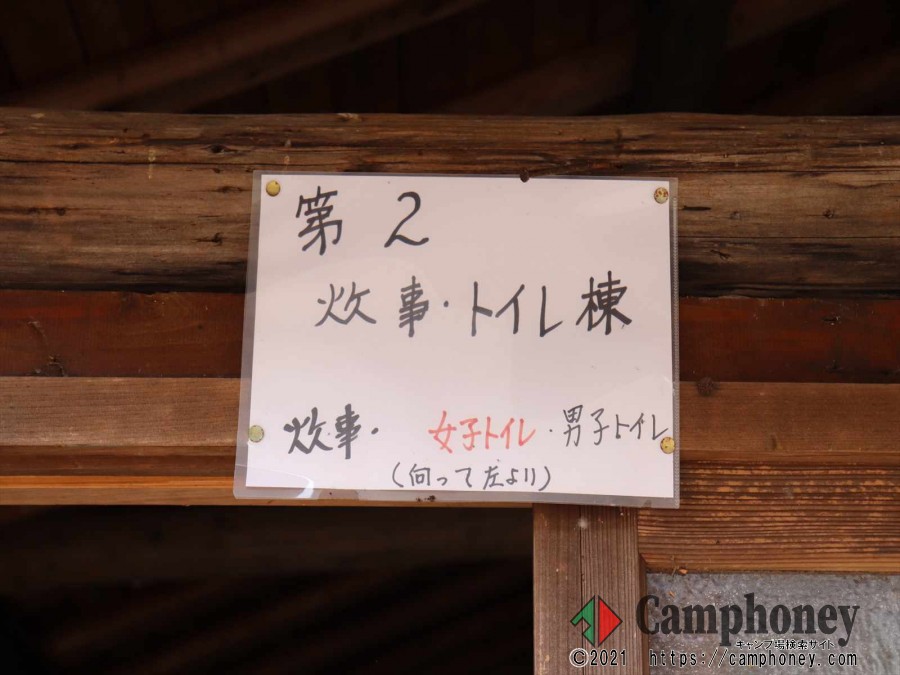 第2
炊事・トイレ棟
炊事・ 女子トイレ・男子トイレ
(向って左より)
Camphoney
キャンプ場検索サイト
©2021 https://camphoney.com